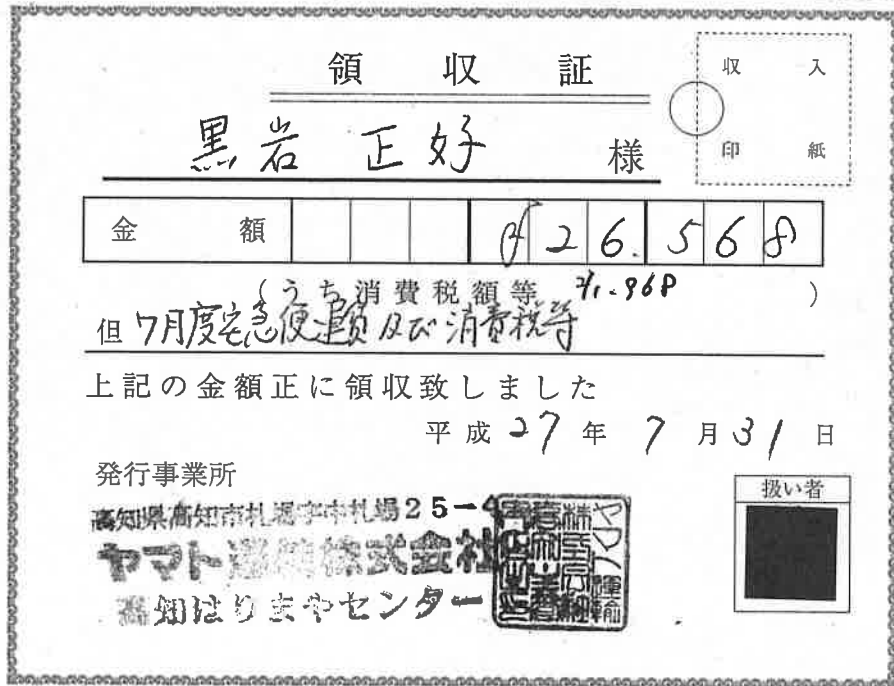 領収証
収入印紙
黒岩 正好 様
金額 ¥26.568
(うち消費税額等 ¥1.968 )
但 7月度宅急便運賃及び消費税等
上記の金額正に領収致しました
平成27年7月31日
発行事業所
扱い者
高知県高知市札場字中札場25-4
ヤマト運輸株式会社
高知はりまやセンター
ヤマト運輸